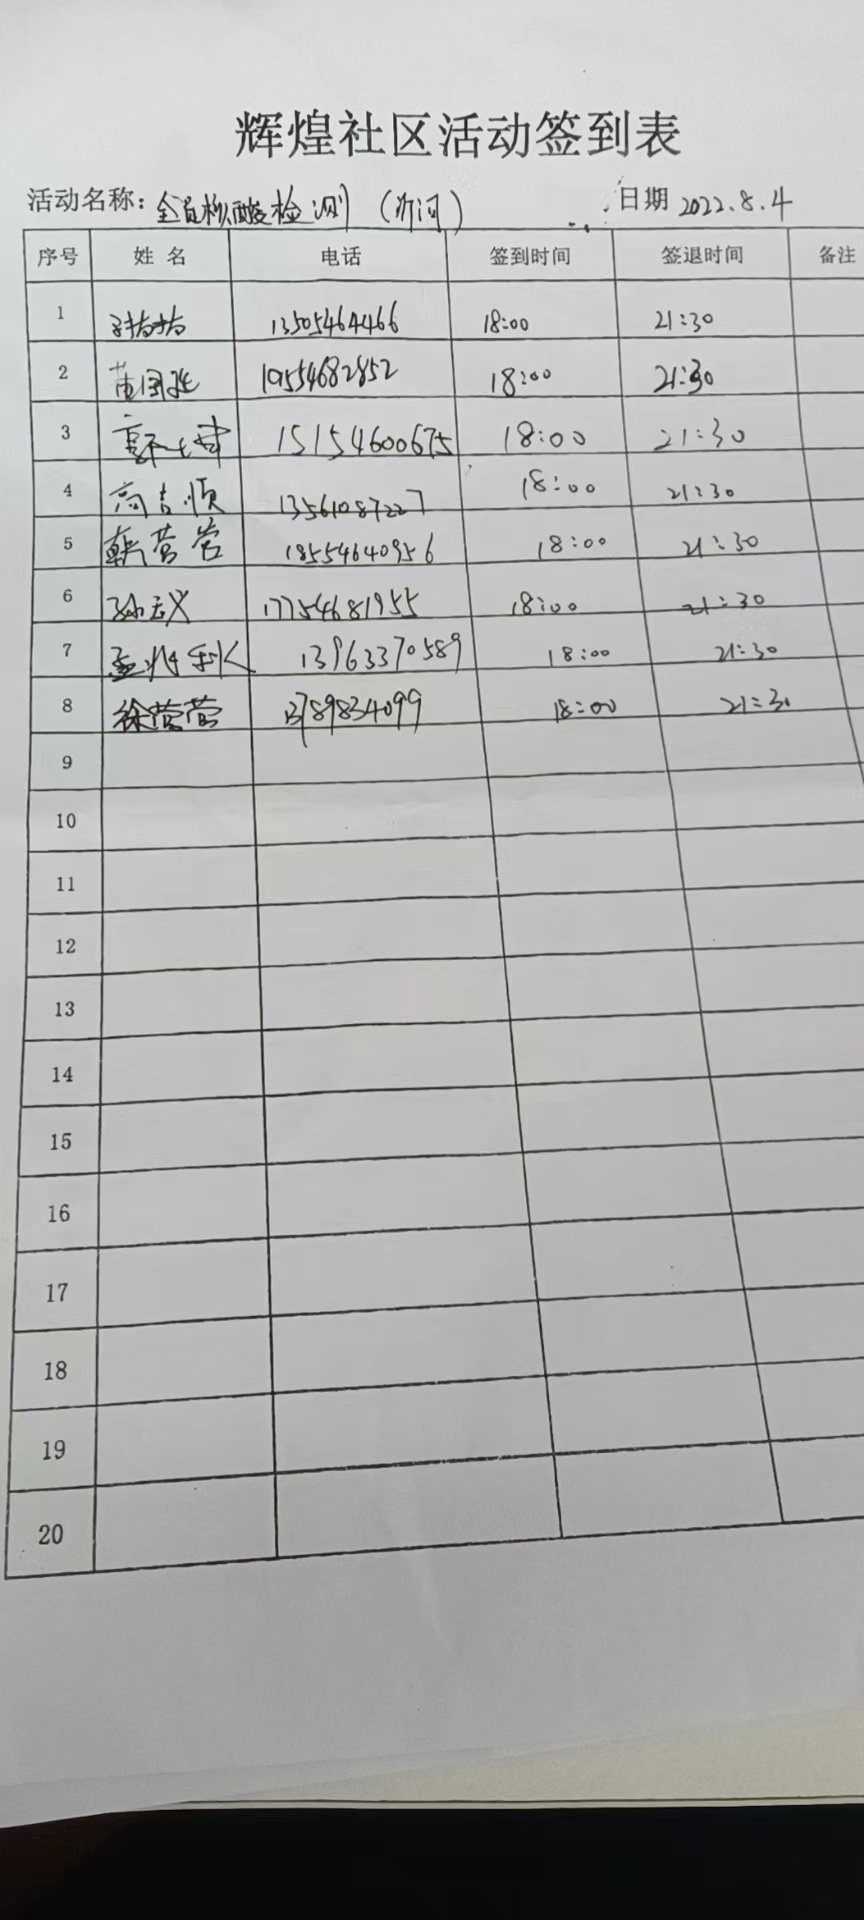 辉煌社区活动签到表
活动名称：全员核酸检测（沂河） 日期 2022.8.4
序号 姓名 电话 签到时间 签退时间 备注
1 13505464466 18:00 21:30
2 黄国胜 19554682852 18:00 21:30
3 15154600675 18:00 21:30
4 高吉顺 13561087227 18:00 21:30
5 韩营营 18554640956 18:00 21:30
6 17754681955 18:00 21:30
7 孟兆利 13963370589 18:00 21:30
8 徐营营 13789834099 18:00 21:30
9
10
11
12
13
14
15
16
17
18
19
20